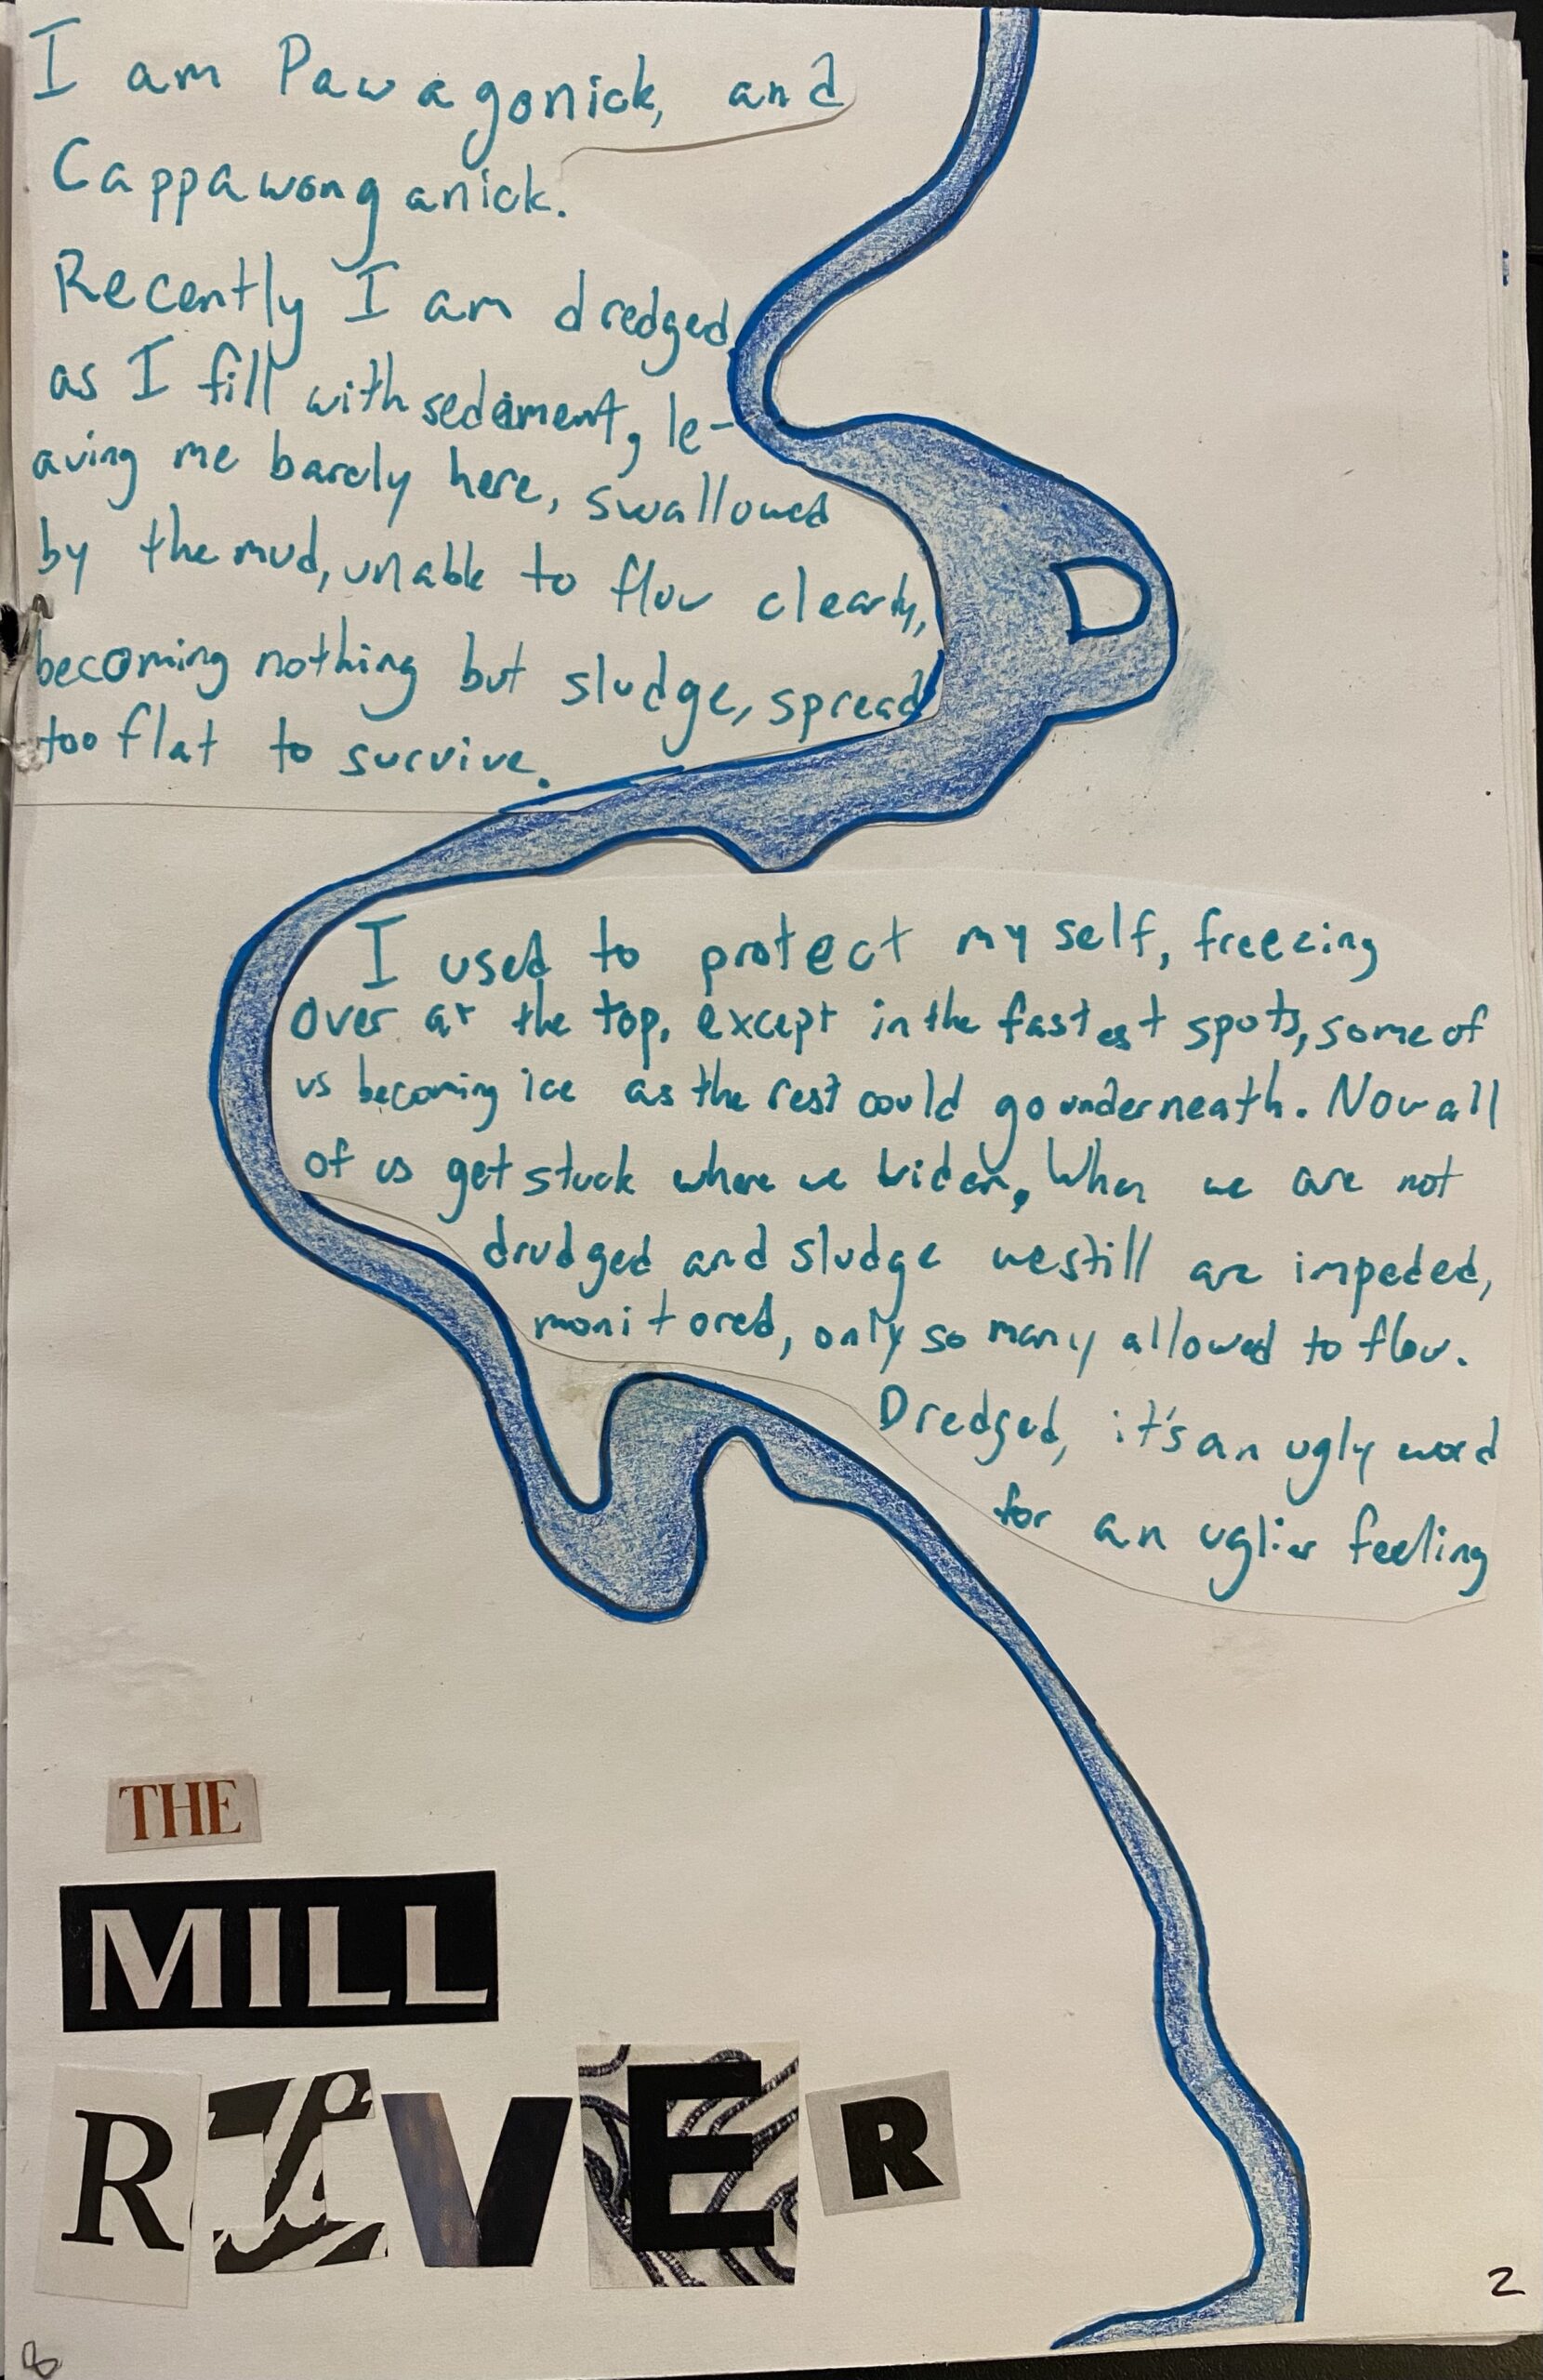 I am Pawagonick, and
Cappawonganick.
Recently I am dredged
as I fill with sediment, le-
aving me barely here, swallowed
by the mud, unable to flow clearly,
becoming nothing but sludge, spread
too flat to survive.
I used to protect my self, freezing
over at the top, except in the fastest spots, some of
us becoming ice as the rest could go underneath. Now all
of us get stuck where we widen, When we are not
drudged and sludge we still are impeded,
monitored, only so many allowed to flow.
Dredged, it's an ugly word
for an uglier feeling
THE
MILL
RIVER
2